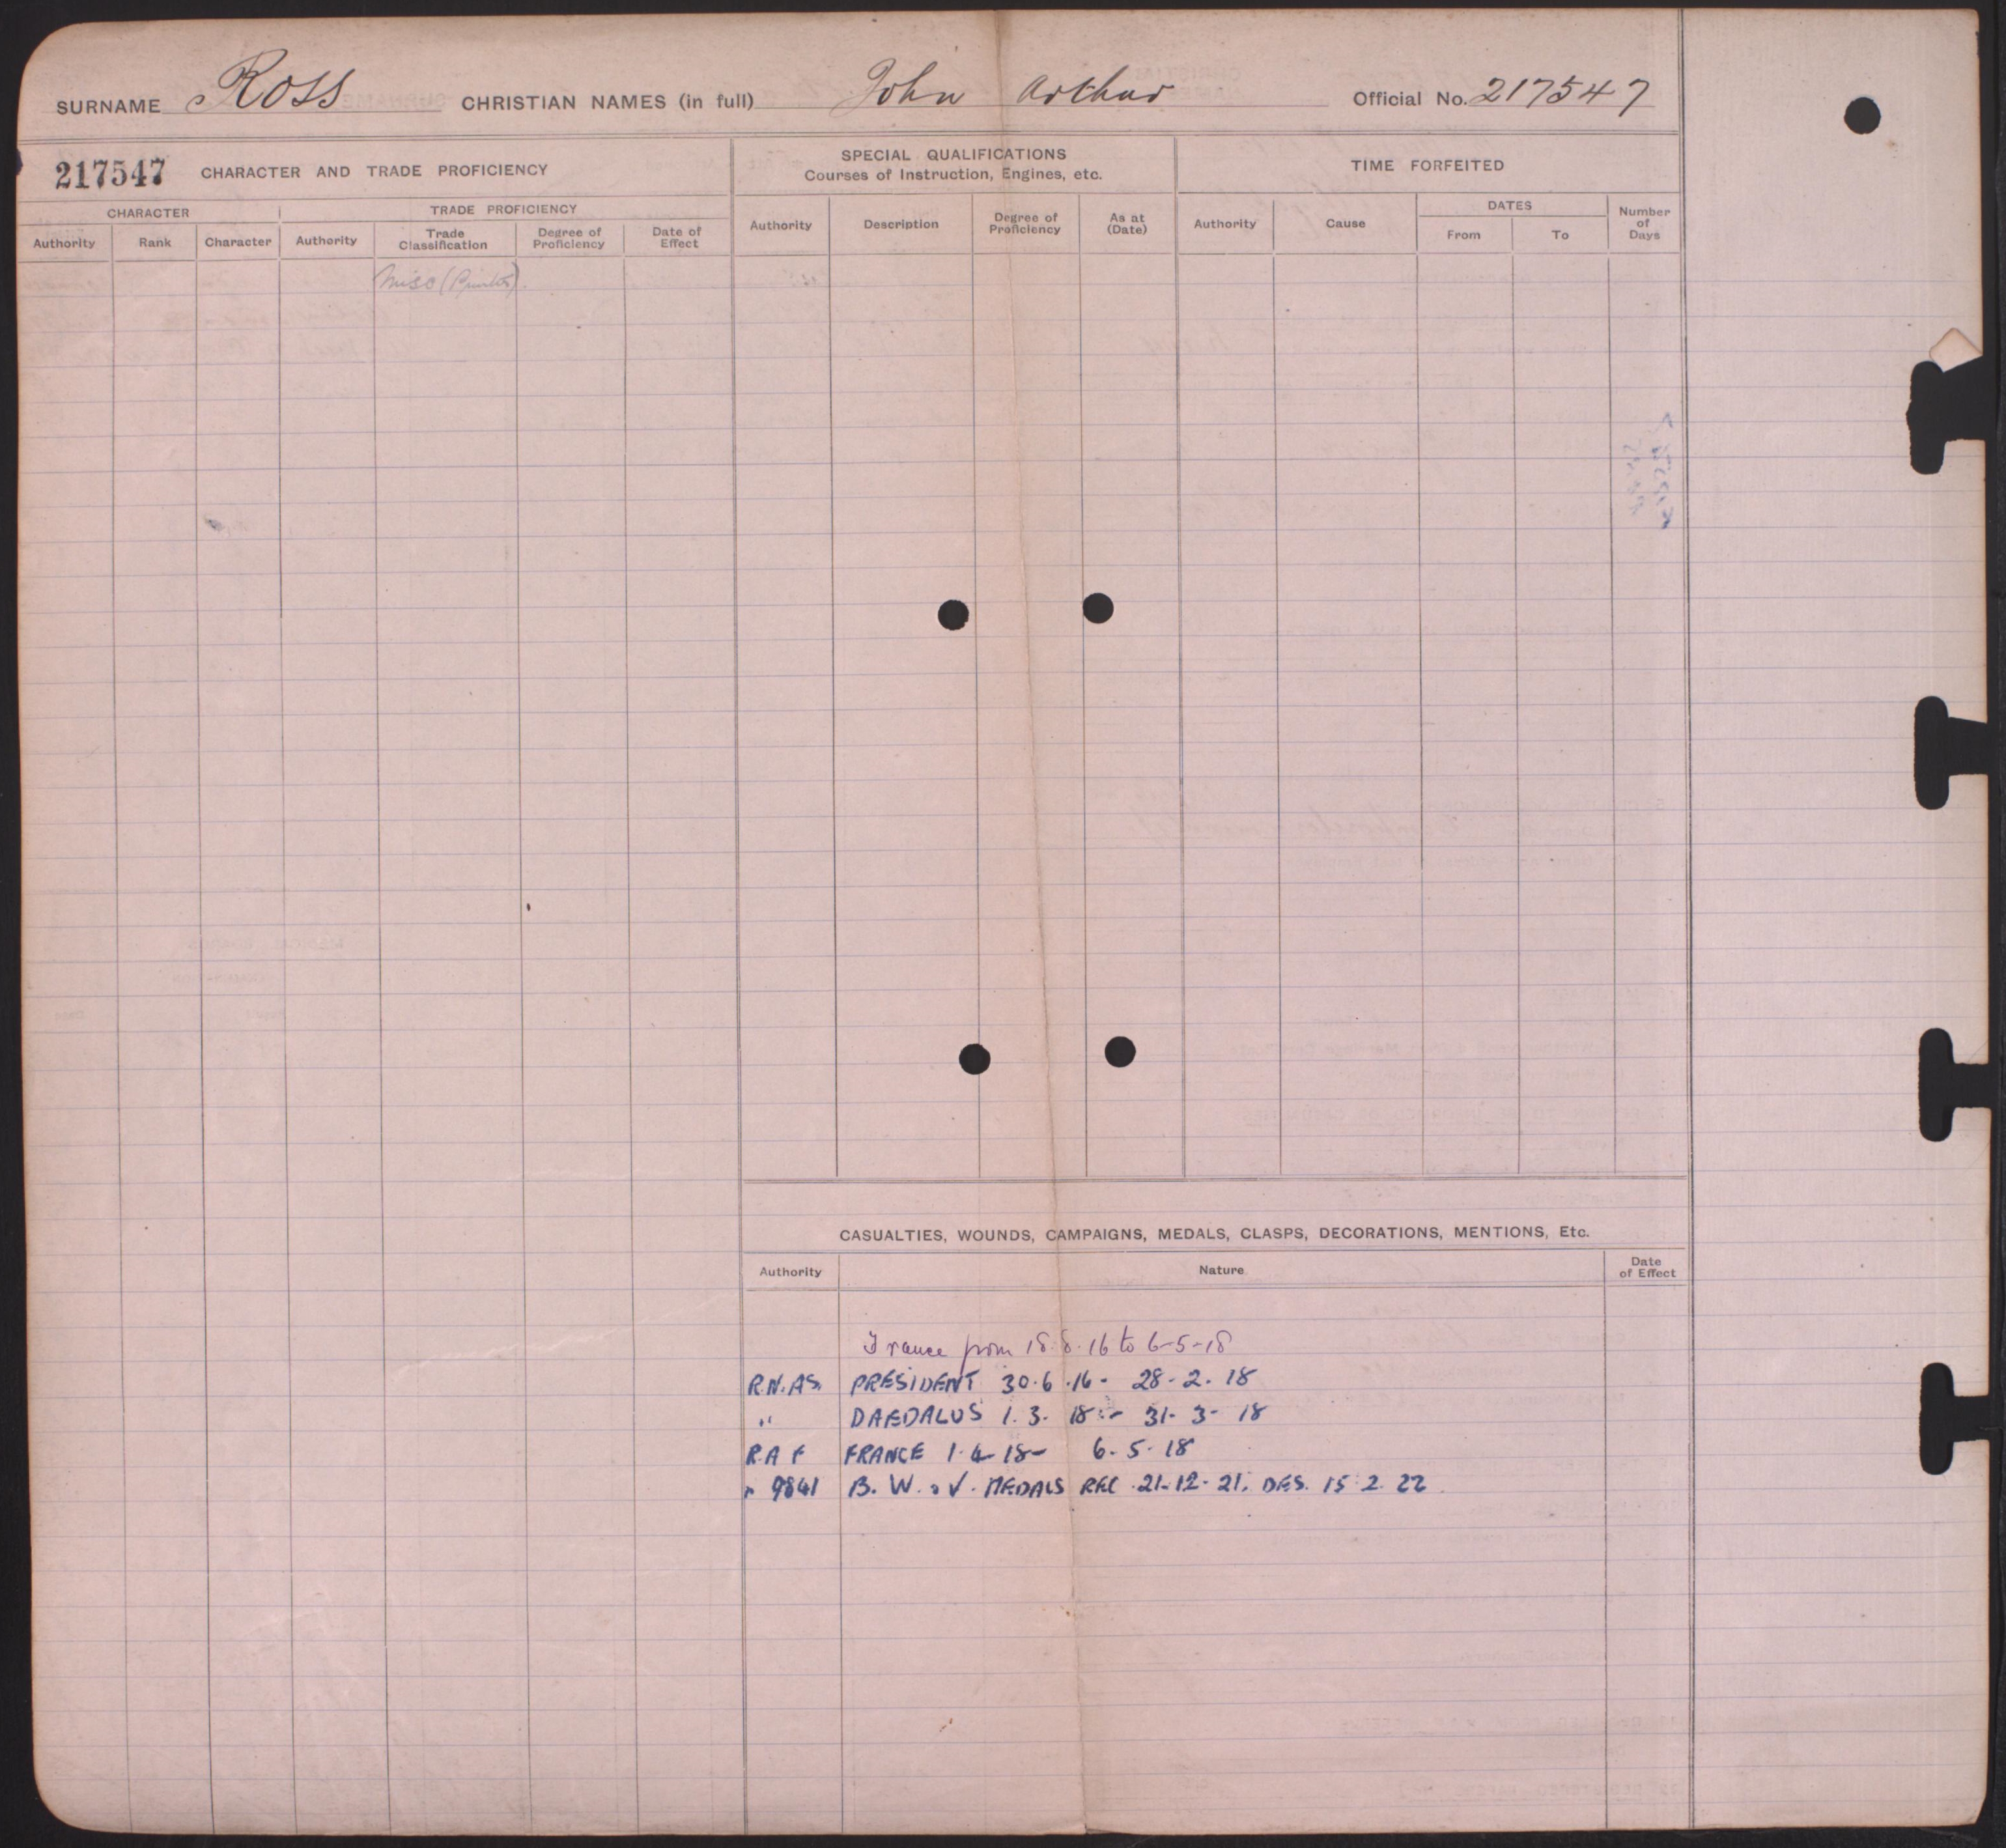 SURNAME Ross CHRISTIAN NAMES (in full) John Arthur Official No. 217547
217547 CHARACTER AND TRADE PROFICIENCY
CHARACTER TRADE PROFICIENCY
Authority Rank Character Authority Trade Classification Degree of Proficiency Date of Effect
Misc (Printer).
SPECIAL QUALIFICATIONS
Courses of Instruction, Engines, etc.
Authority Description Degree of Proficiency As at (Date)
TIME FORFEITED
Authority Cause DATES From To Number of Days
CASUALTIES, WOUNDS, CAMPAIGNS, MEDALS, CLASPS, DECORATIONS, MENTIONS, Etc.
Authority Nature Date of Effect
France from 18.8.16 to 6-5-18
R.N.AS. PRESIDENT 30.6.16 - 28-2.18
" DAEDALUS 1.3.18 - 31-3-18
R.A F FRANCE 1-4-18- 6-5-18
" 9841 B. W. & V. MEDALS REC 21-12-21. DES. 15.2.22